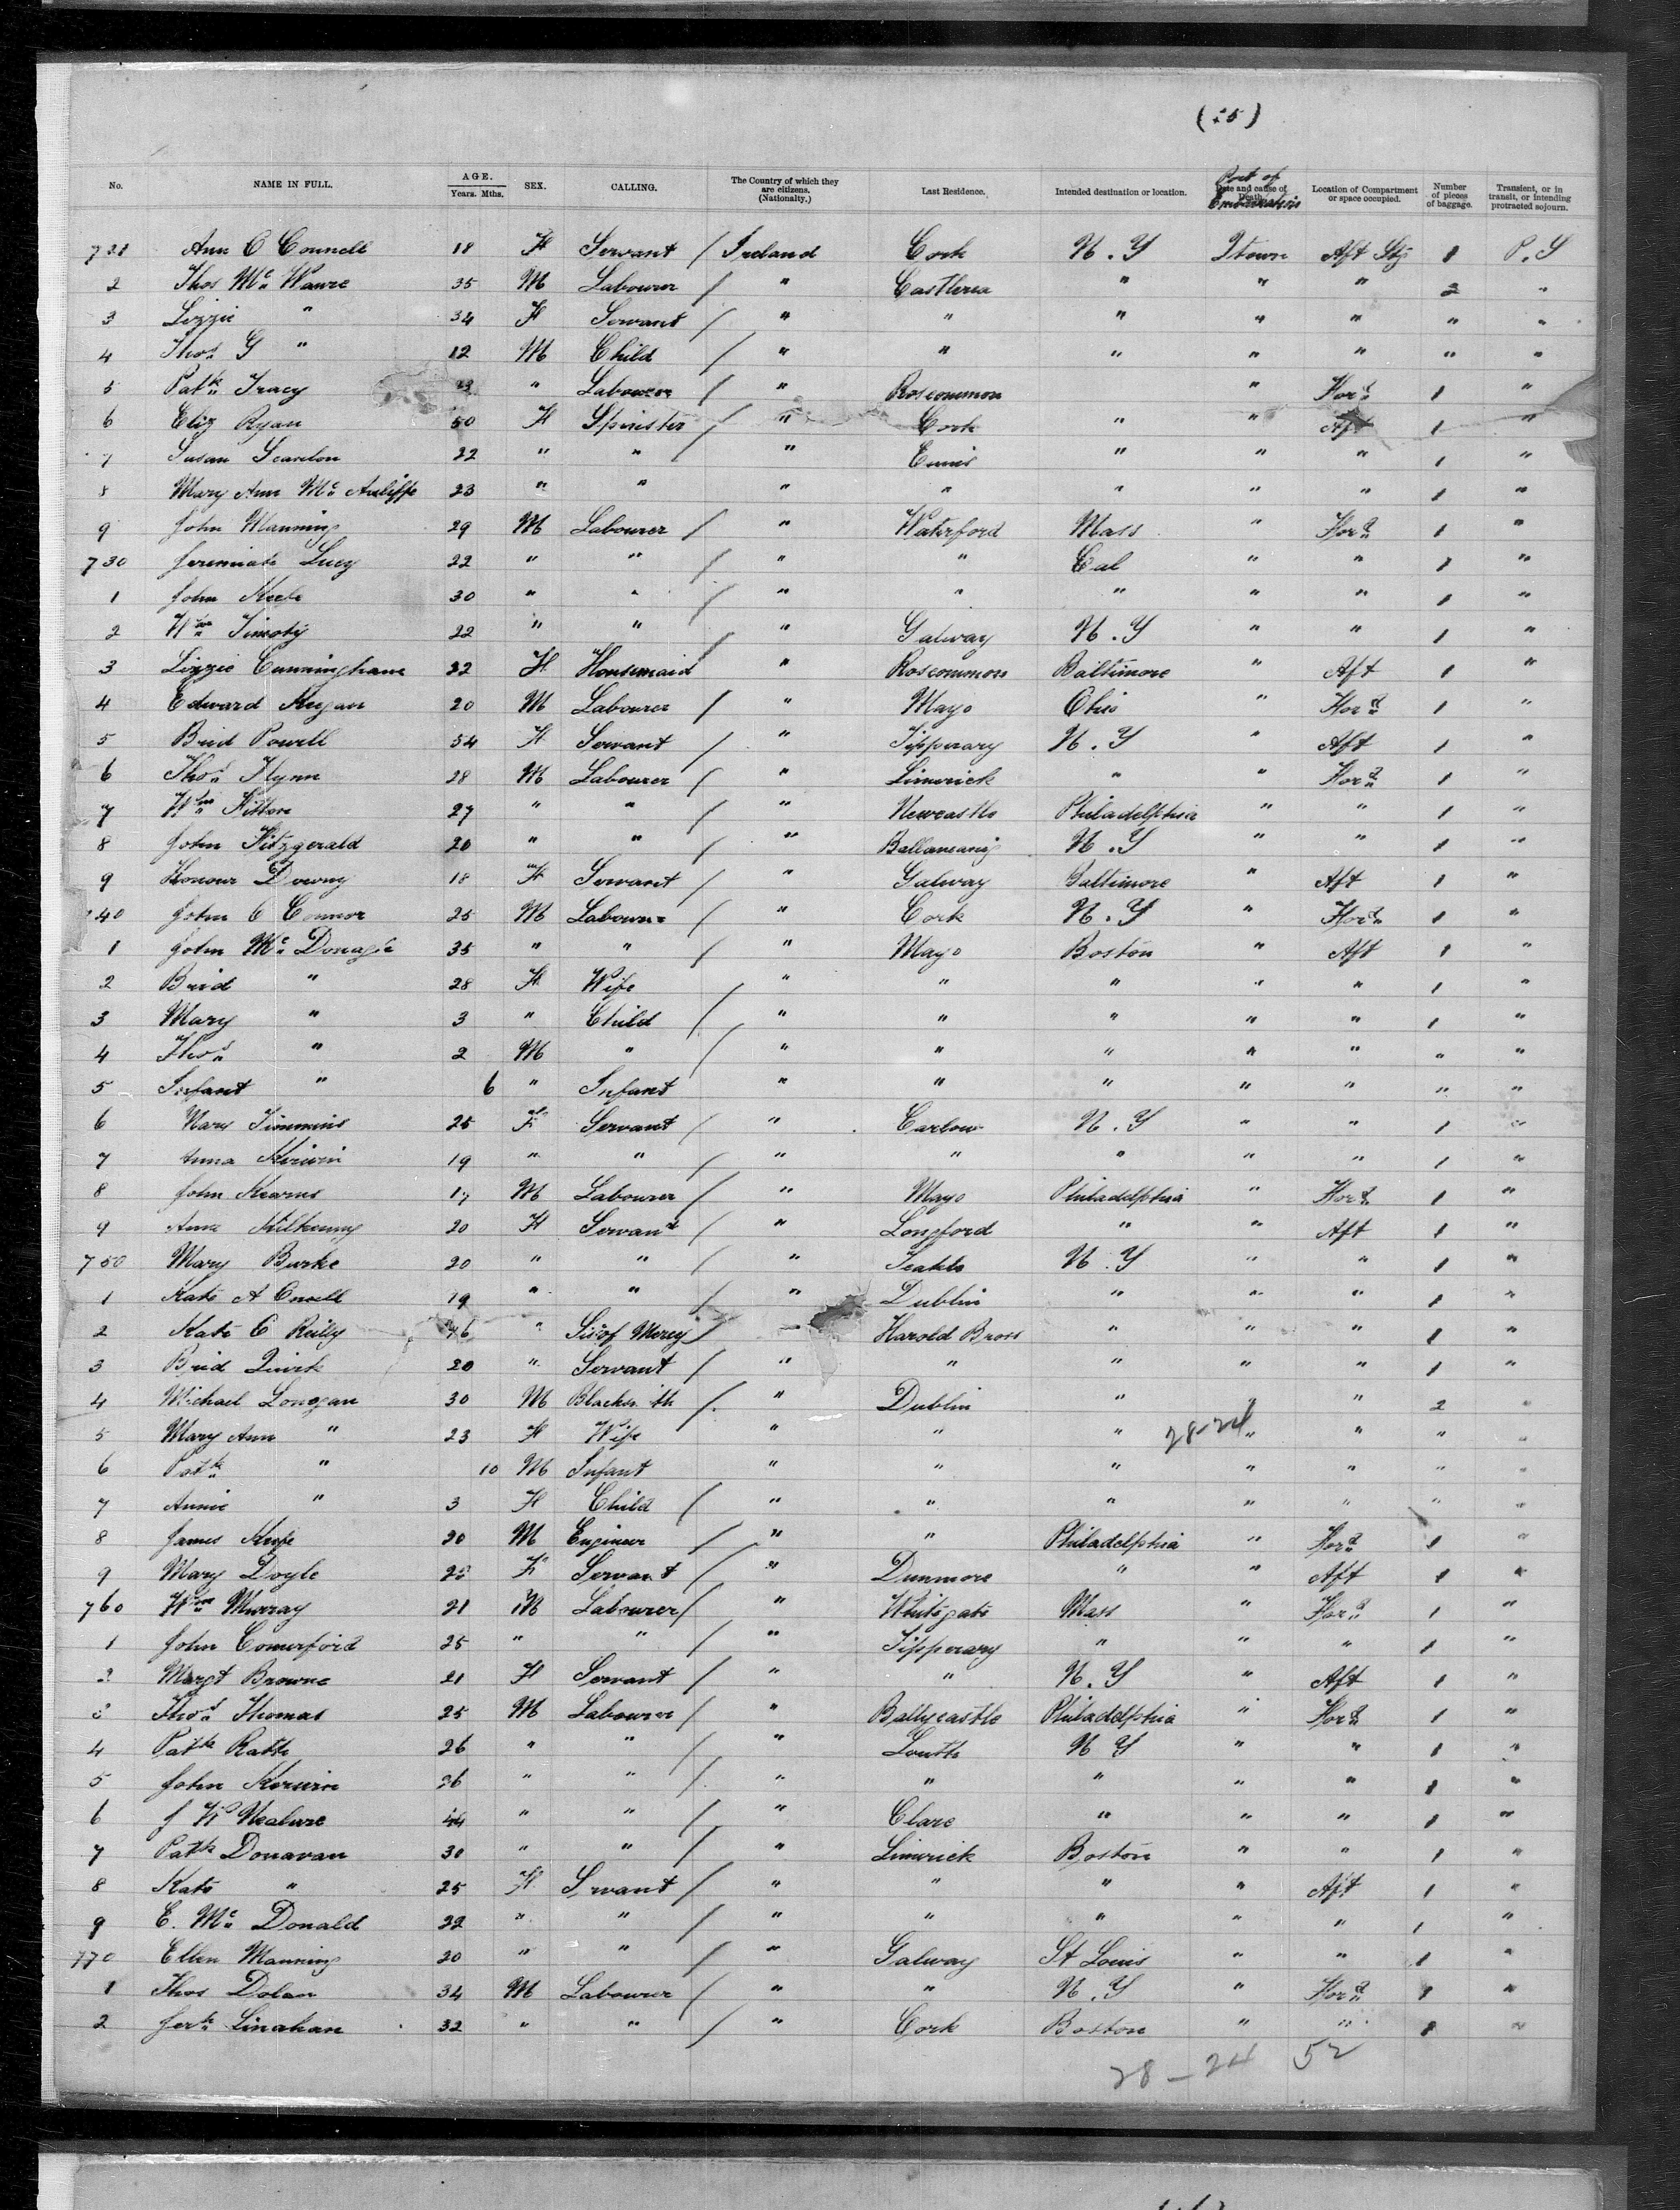 (25)
No. NAME IN FULL. AGE. Years. Mths. SEX. CALLING. The Country of which they are citizens. (Nationality.) Last Residence. Intended destination or location. Port of Embarkation Date and cause of Death. Location of Compartment or space occupied. Number of pieces of baggage. Transient, or in transit, or intending protracted sojourn.
721 Ann O Connell 18 F Servant / Ireland Cork N.Y Qtown Aft Stg 1 P.S
2 Thos Mc 35 M Labourer / " Castlerea " " " 2 "
3 Lizzie " 34 F Servant / " " " " " " "
4 Thos G " 12 M Child / " " " " " " "
5 Patk Tracy Labourer / " Roscommon " Ford 1 "
6 Eliz Ryan 50 F Spinister / " Cork " " Aft 1 "
7 Susan Scanlon 22 " " / " Ennis " " " 1 "
8 Mary Ann Mc Auliffe 23 " " " " " " " 1 "
9 John Manning 29 M Labourer / " Waterford Mass " Ford 1 "
730 Jeremiah Lucy 22 " " / " " Cal " " 1 "
1 John 30 " " / " " " " " 1 "
2 Wm 22 " " / " Galway N.Y " " 1 "
3 Lizzie Cunningham 22 F Housemaid " Roscommon Baltimore " Aft 1 "
4 Edward Keegan 20 M Labourer / " Mayo Ohio " Ford 1 "
5 Brid Powell 54 F Servant / " Tipperary N.Y " Aft 1 "
6 Thos Flynn 28 M Labourer / " Limerick " " Ford 1 "
7 Wm Fitton 27 " " / " Newcastle Philadelphia " " 1 "
8 John Fitzgerald 20 " " / " N.Y " " 1 "
9 Honour Downy 18 F Servant / " Galway Baltimore " Aft 1 "
740 John O Connor 25 M Labourer / " Cork N.Y " Ford 1 "
1 John Mc Donagh 35 " " / " Mayo Boston " Aft 1 "
2 Brid " 28 F Wife / " " " " " 1 "
3 Mary " 3 " Child / " " " " " 1 "
4 Thos " 2 M " / " " " " " " "
5 Infant " 6 " Infant " " " " " " "
6 Mary Timmins 25 F Servant / " Carlow N.Y " " 1 "
7 Anna Kirwin 19 " " / " " " " " 1 "
8 John Kearns 17 M Labourer / " Mayo Philadelphia " Ford 1 "
9 Anne Kilkenny 20 F Servant / " Longford " " Aft 1 "
750 Mary Burke 20 " " / " N.Y " " 1 "
1 Kate 19 " " / " Dublin " " " 1 "
2 Kate O Reilly " Sis of Mercy / " Harold Bross " " " 1 "
3 Brid Quirk 20 " Servant / " " " " " 1 "
4 Michael Lonegan 30 M Blacksmith / " Dublin " " " 2 "
5 Mary Ann " 23 F Wife / " " " " " " "
28-24
6 Patk " 10 M Infant " " " " " " "
7 Annie " 3 F Child / " " " " " " "
8 James Keefe 20 M Engineer / " " Philadelphia " Ford 1 "
9 Mary Doyle F Servant / " Dunmore " " Aft 1 "
760 Wm Murray 21 M Labourer / " Whitegate Mass " Ford 1 "
1 John Comerford 25 " " / " Tipperary " " " 1 "
2 Margt Browne 21 F Servant / " " N.Y " Aft 1 "
3 Thos Thomas 25 M Labourer / " Ballycastle Philadelphia " Ford 1 "
4 Patk Rath 26 " " / " Louth N Y " " 1 "
5 John Kerwin 26 " " / " " " " " 1 "
6 J W 44 " " / " Clare " " " 1 "
7 Patk Donavan 30 " " / " Limerick Boston " " 1 "
8 Kate " 25 F Servant / " " " " Aft 1 "
9 E. Mc Donald 22 " " / " " " " " 1 "
770 Ellen Manning 20 " " / " Galway St Louis " " 1 "
1 Thos Dolan 34 M Labourer / " " N.Y " Ford 1 "
2 Jerh Linahan 32 " " / " Cork Boston " " 1 "
28-24 52